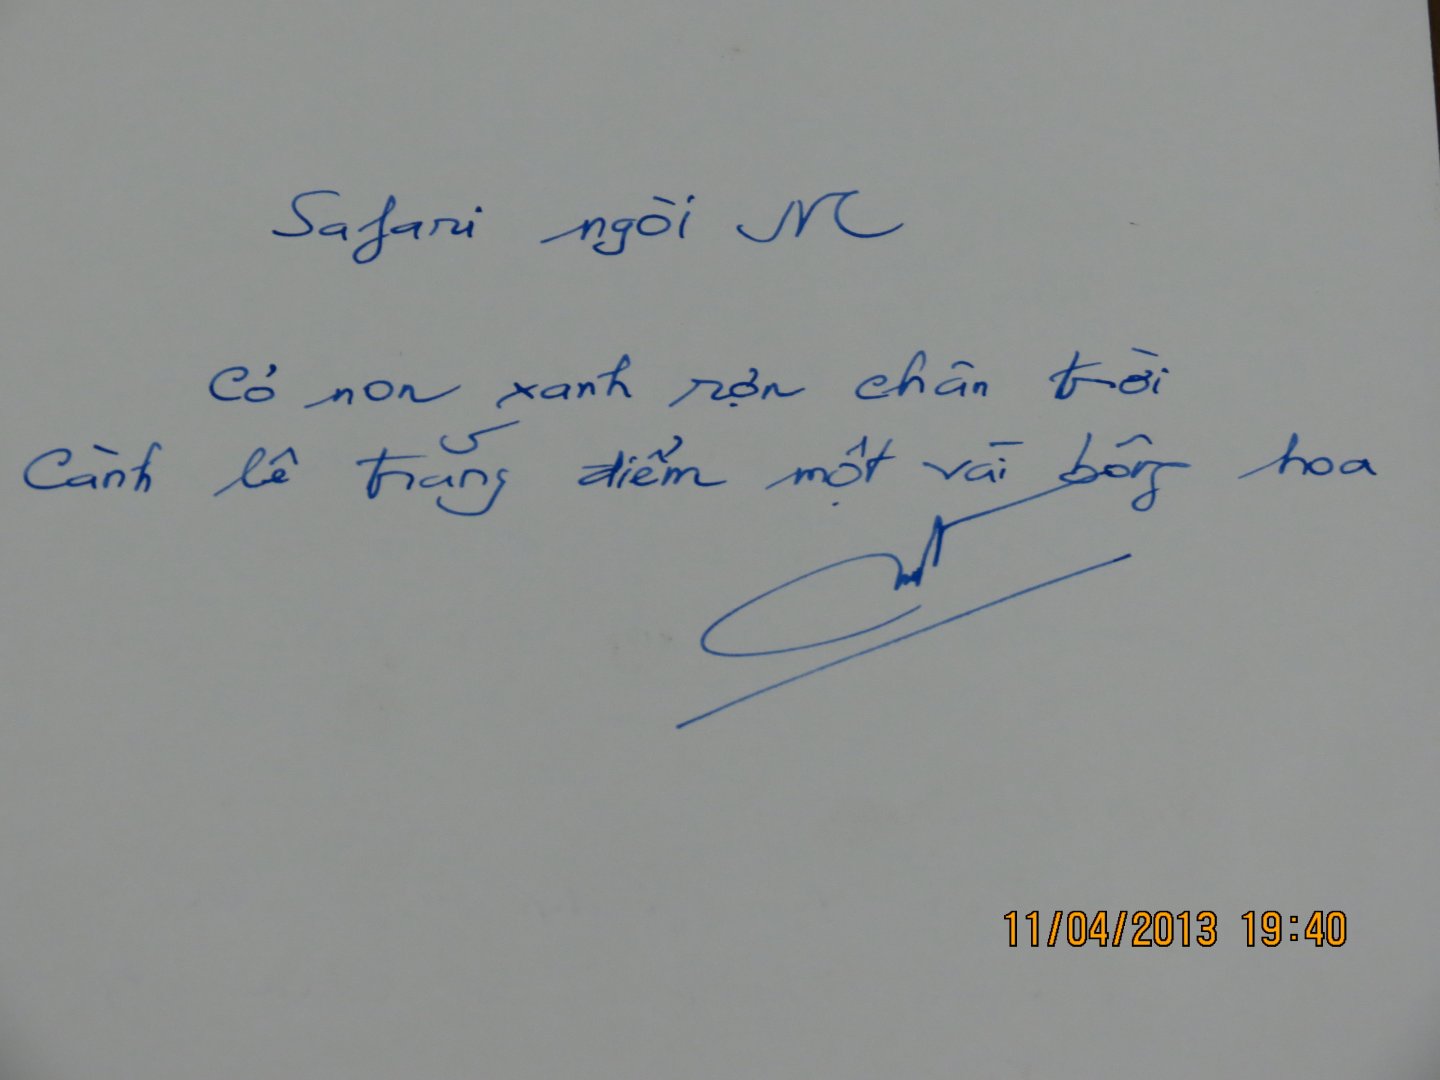 Safari ngòi M
Cỏ non xanh rợn chân trời
Cành lê trắng điểm một vài bông hoa
11/04/2013 19:40